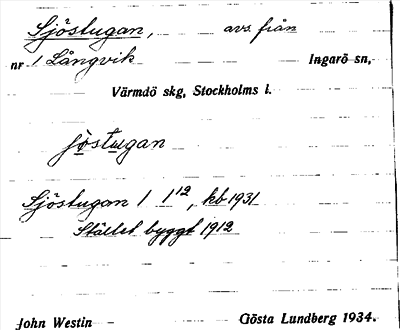 Sjöstugan, avs. från
nr 1 Långvik Ingarö sn,
Värmdö skg, Stockholms l.
jöstugan
Sjöstugan 1 1 12, kb 1931
Stället byggt 1912
John Westin Gösta Lundberg 1934.